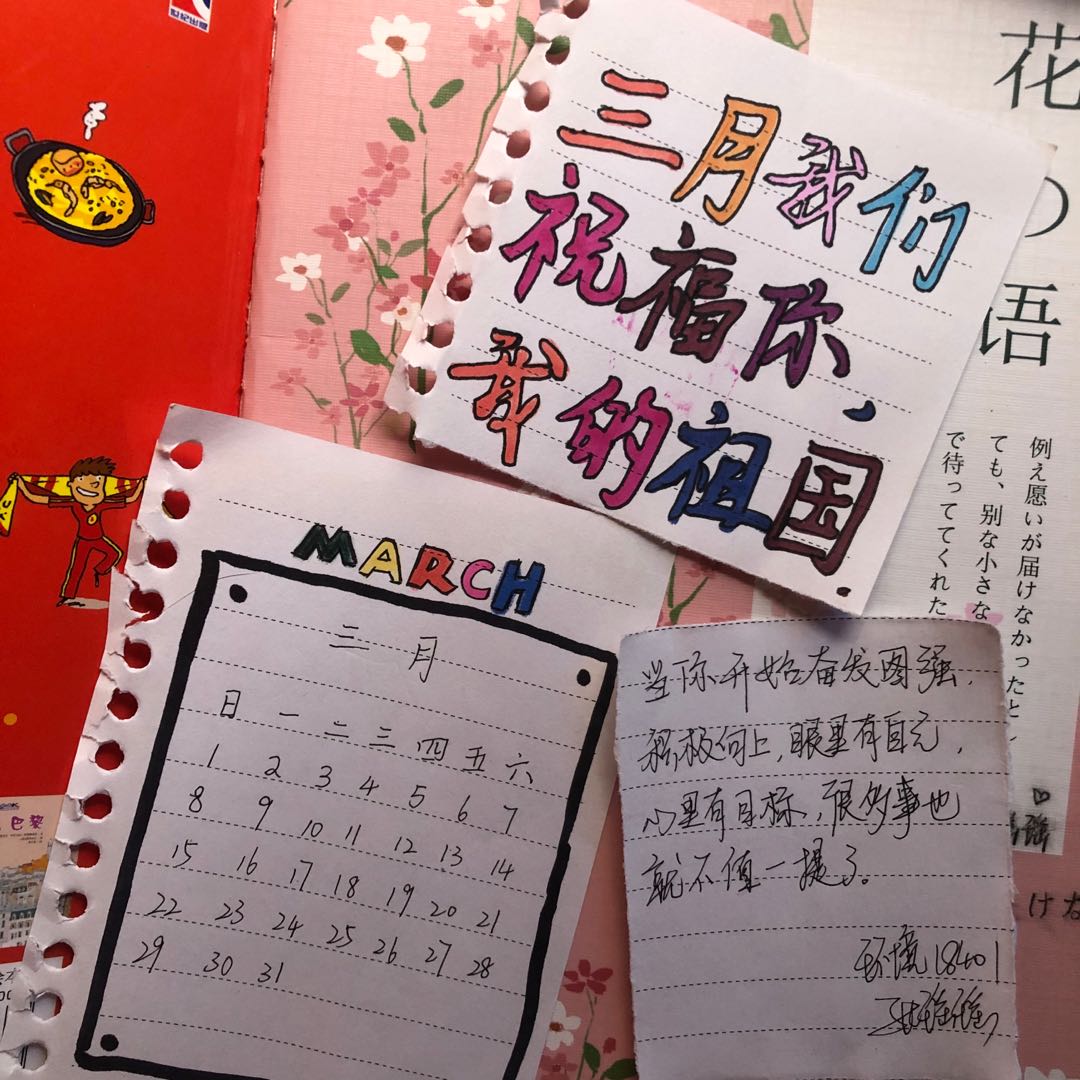 世纪出版
三月我们
祝福你，
我的祖国.
花
の
语
例え愿いが届けなかったと
ても、别な小さな
で待っててくれた
MARCH
三月
日 一 二 三 四 五 六
1 2 3 4 5 6 7
8 9 10 11 12 13 14
15 16 17 18 19 20 21
22 23 24 25 26 27 28
29 30 31
当你开始奋发图强，
积极向上，眼里有自己，
心里有目标，很多事也
就不值一提了。
环境18401
けな
巴黎